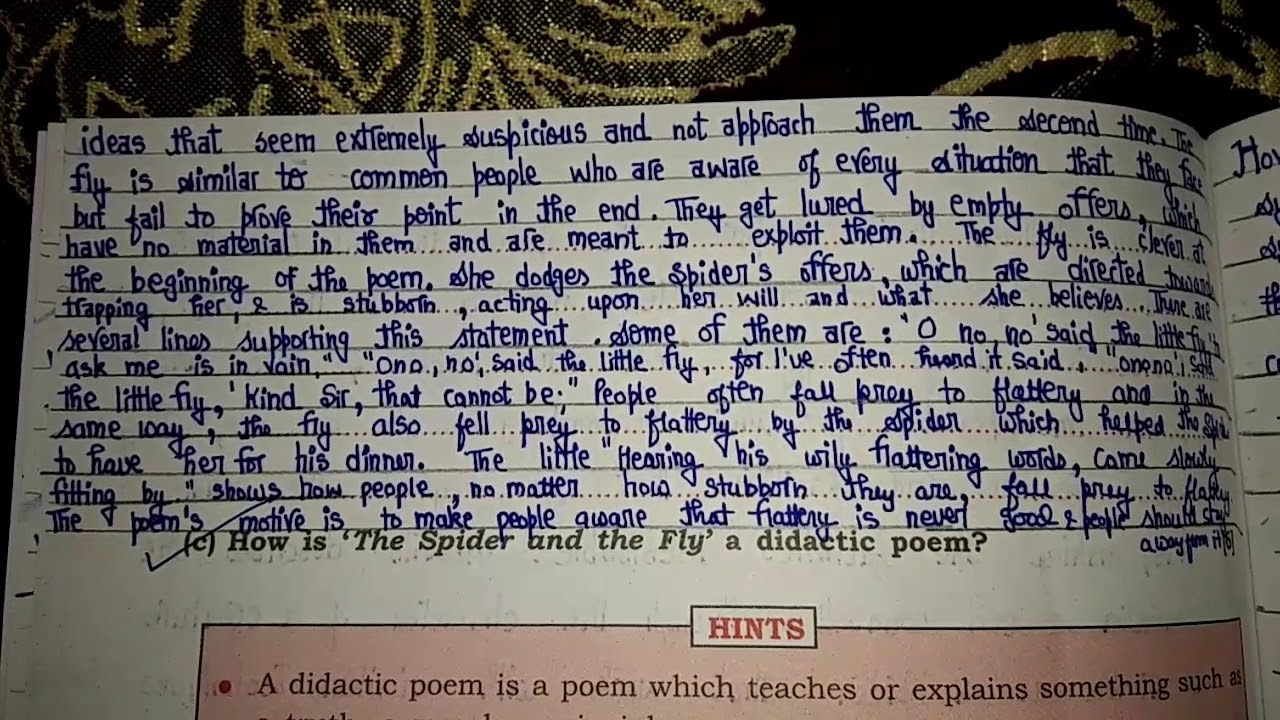 ideas that seem extremely suspicious and not approach them the second time. The
fly is similar to common people who are aware of every situation that they face
but fail to prove their point in the end. They get lured by empty offers, which
have no material in them and are meant to exploit them. The fly is clever at
the beginning of the poem. She dodges the spider's offers, which are directed towards
trapping her, & is stubborn, acting upon her will and what she believes. There are
several lines supporting this statement. Some of them are : 'O no, no' said the little fly,
ask me is in vain," "Ono, no', said the little fly, for I've often heard it said," "onono', said
the little fly, 'Kind Sir, that cannot be;" People often fall prey to flattery and in the
same way, the fly also fell prey to flattery by the spider which helped the
to have her for his dinner. The little "Hearing his wily flattering words, came slowly
fitting by" shows how people, no matter how stubborn they are, fall prey to
The poem's motive is to make people aware that flattery is never good & people should stay
away from it
(c) How is 'The Spider and the Fly' a didactic poem?
HINTS
• A didactic poem is a poem which teaches or explains something such as